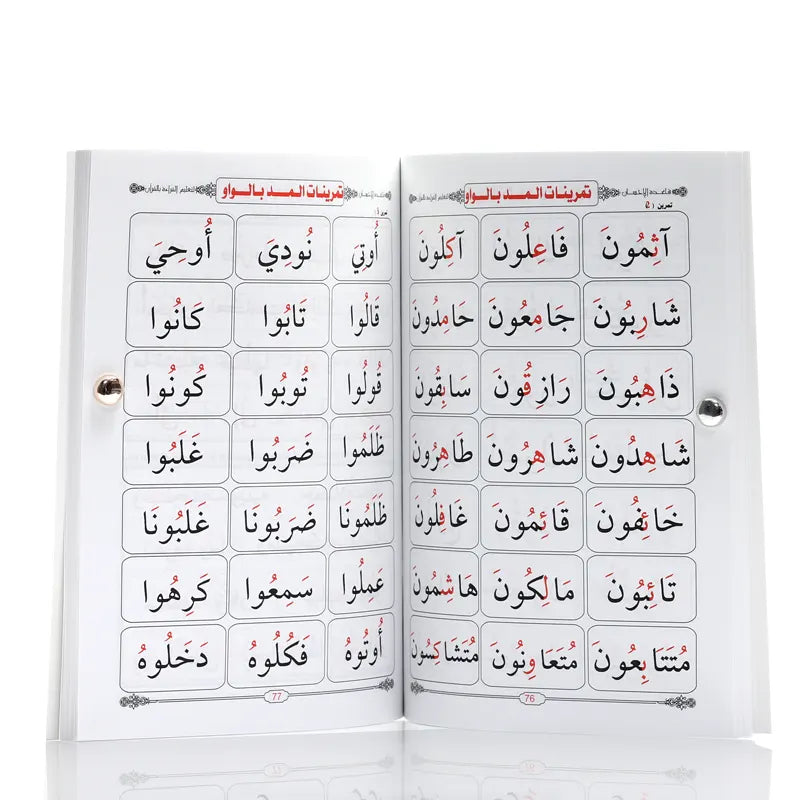 قاعدة الإحسان تمرينات المد بالواو لتعليم القراءة بالقرآن
تمرين (
آثِمُونَ فَاعِلُونَ آكِلُونَ
شَارِبُونَ جَامِعُونَ حَامِدُونَ
ذَاهِبُونَ رَازِقُونَ سَابِقُونَ
شَاهِدُونَ شَاهِرُونَ طَاهِرُونَ
خَائِفُونَ قَائِمُونَ غَافِلُونَ
تَائِبُونَ مَالِكُونَ هَاشِمُونَ
مُتَتَابِعُونَ مُتَعَاوِنُونَ مُتَشَاكِسُونَ
76
قاعدة الإحسان تمرينات المد بالواو لتعليم القراءة بالقرآن
أُوتِيَ نُودِيَ أُوحِيَ
قَالُوا تَابُوا كَانُوا
قُولُوا تُوبُوا كُونُوا
ظَلَمُوا ضَرَبُوا غَلَبُوا
ظَلَمُونَا ضَرَبُونَا غَلَبُونَا
عَمِلُوا سَمِعُوا كَرِهُوا
أُوتُوهُ فَكُلُوهُ دَخَلُوهُ
77